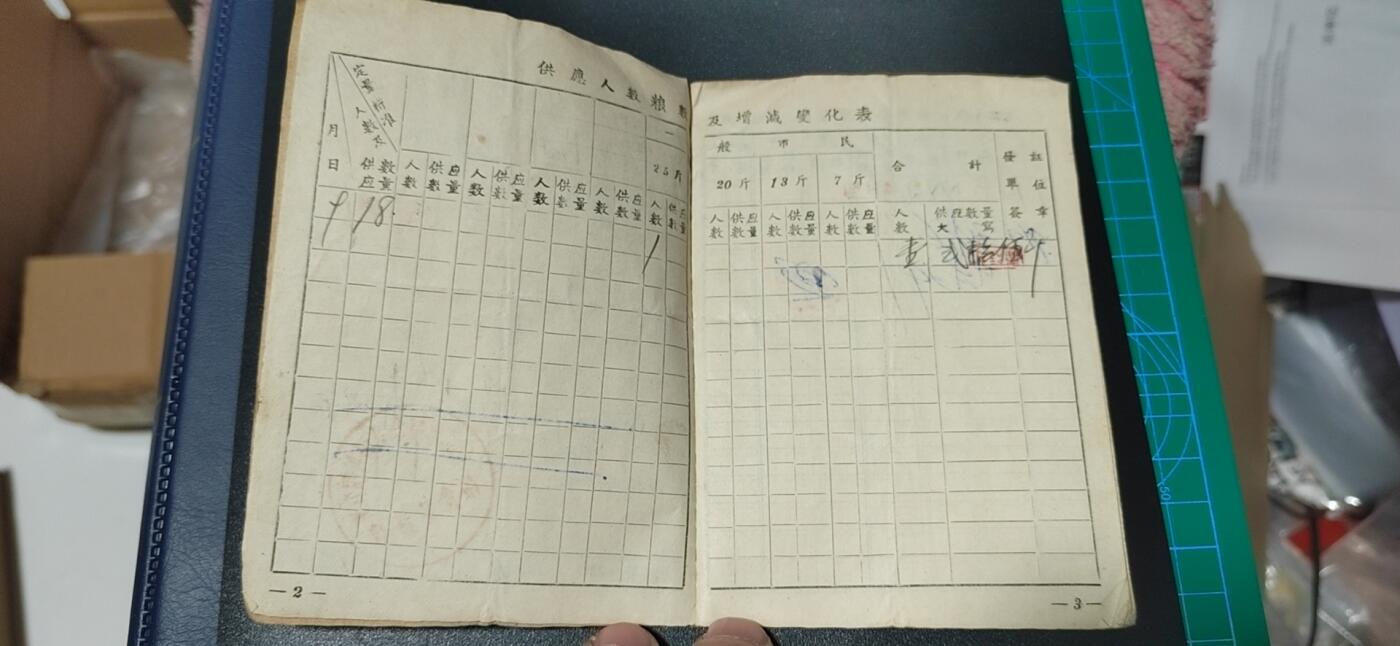 供應人數粮數
定量标准
人數
月
日
供应數量
人數 供应數量 人數 供应數量 人數 供应數量 人數 供应數量
一
25斤
人數 供应數量
9 18.
1
— 2 —
及增減變化表
般 市 民
20斤 13斤 7斤
合計
發單位簽章
註
人數 供应數量 人數 供应數量 人數 供应數量 人數 供应數量大寫
壹 弍拾伍斤
— 3 —
50